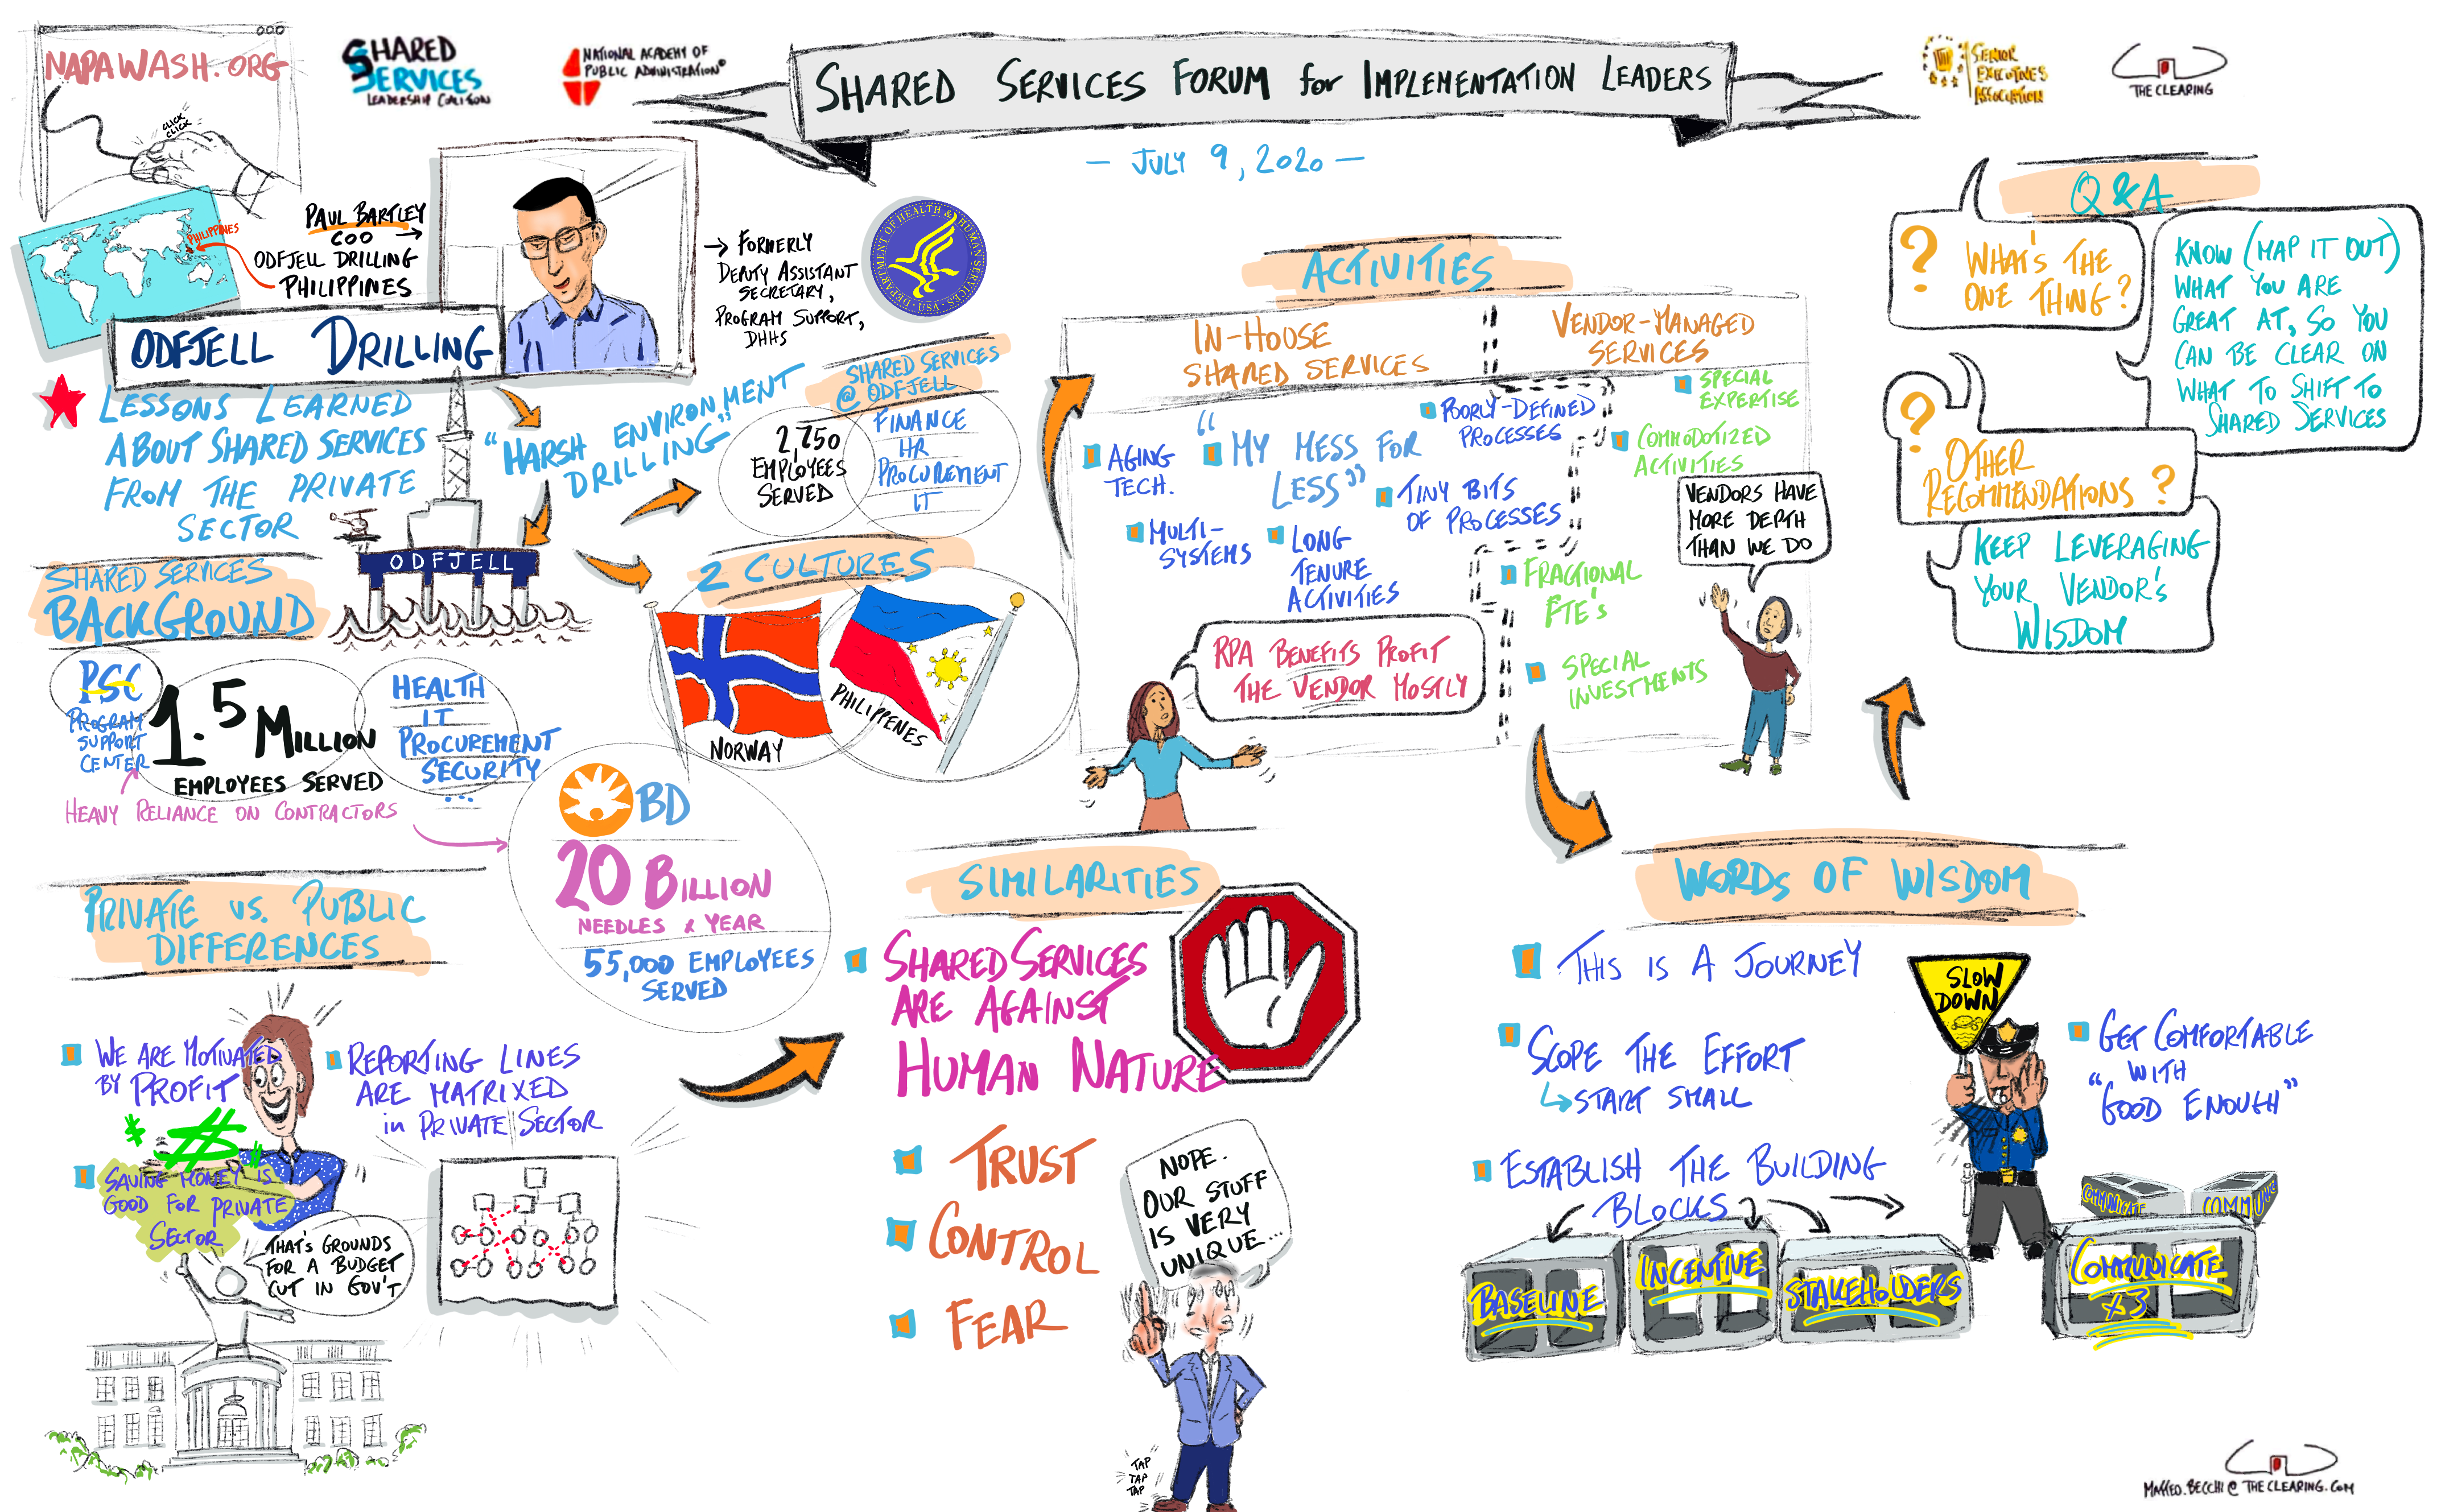 NAPAWASH.ORG
CLICK
CLICK
SHARED
SERVICES
LEADERSHIP COALITION
NATIONAL ACADEMY OF
PUBLIC ADMINISTRATION®
SHARED SERVICES FORUM for IMPLEMENTATION LEADERS
— JULY 9, 2020 —
SENIOR
EXECUTIVES
ASSOCIATION
THE CLEARING
PHILIPPINES
PAUL BARTLEY
COO
ODFJELL DRILLING
PHILIPPINES
ODFJELL DRILLING
FORMERLY
DEPUTY ASSISTANT
SECRETARY,
PROGRAM SUPPORT,
DHHS
DEPARTMENT OF HEALTH & HUMAN SERVICES · USA
LESSONS LEARNED
ABOUT SHARED SERVICES
FROM THE PRIVATE
SECTOR
"HARSH ENVIRONMENT
DRILLING"
ODFJELL
SHARED SERVICES
@ ODFJELL
2,750
EMPLOYEES
SERVED
FINANCE
HR
PROCUREMENT
IT
2 CULTURES
NORWAY
PHILIPPENES
SHARED SERVICES
BACKGROUND
PSC
PROGRAM
SUPPORT
CENTER
1.5 MILLION
EMPLOYEES SERVED
HEALTH
IT
PROCUREMENT
SECURITY
...
HEAVY RELIANCE ON CONTRACTORS
BD
20 BILLION
NEEDLES A YEAR
55,000 EMPLOYEES
SERVED
PRIVATE vs. PUBLIC
DIFFERENCES
WE ARE MOTIVATED
BY PROFIT
$ $ $
SAVING MONEY IS
GOOD FOR PRIVATE
SECTOR
THAT'S GROUNDS
FOR A BUDGET
CUT IN GOV'T
REPORTING LINES
ARE MATRIXED
in PRIVATE SECTOR
SIMILARITIES
SHARED SERVICES
ARE AGAINST
HUMAN NATURE
TRUST
CONTROL
FEAR
NOPE.
OUR STUFF
IS VERY
UNIQUE...
TAP
TAP
TAP
ACTIVITIES
IN-HOUSE
SHARED SERVICES
AGING
TECH.
"MY MESS FOR
LESS"
POORLY-DEFINED
PROCESSES
MULTI-
SYSTEMS
LONG
TENURE
ACTIVITIES
TINY BITS
OF PROCESSES
RPA BENEFITS PROFIT
THE VENDOR MOSTLY
VENDOR-MANAGED
SERVICES
SPECIAL
EXPERTISE
COMMODOTIZED
ACTIVITIES
FRACTIONAL
FTE's
SPECIAL
INVESTMENTS
VENDORS HAVE
MORE DEPTH
THAN WE DO
WORDS OF WISDOM
THIS IS A JOURNEY
SCOPE THE EFFORT
START SMALL
ESTABLISH THE BUILDING
BLOCKS
SLOW
DOWN
GET COMFORTABLE
WITH
"GOOD ENOUGH"
BASELINE
INCENTIVE
STAKEHOLDERS
COMMUNICATE
x3
COMMUNICATE
COMMUNIC
Q & A
? WHAT'S THE
ONE THING?
KNOW (MAP IT OUT)
WHAT YOU ARE
GREAT AT, SO YOU
CAN BE CLEAR ON
WHAT TO SHIFT TO
SHARED SERVICES
? OTHER
RECOMMENDATIONS?
KEEP LEVERAGING
YOUR VENDOR'S
WISDOM
MAFFEO.BECCHI@THECLEARING.COM